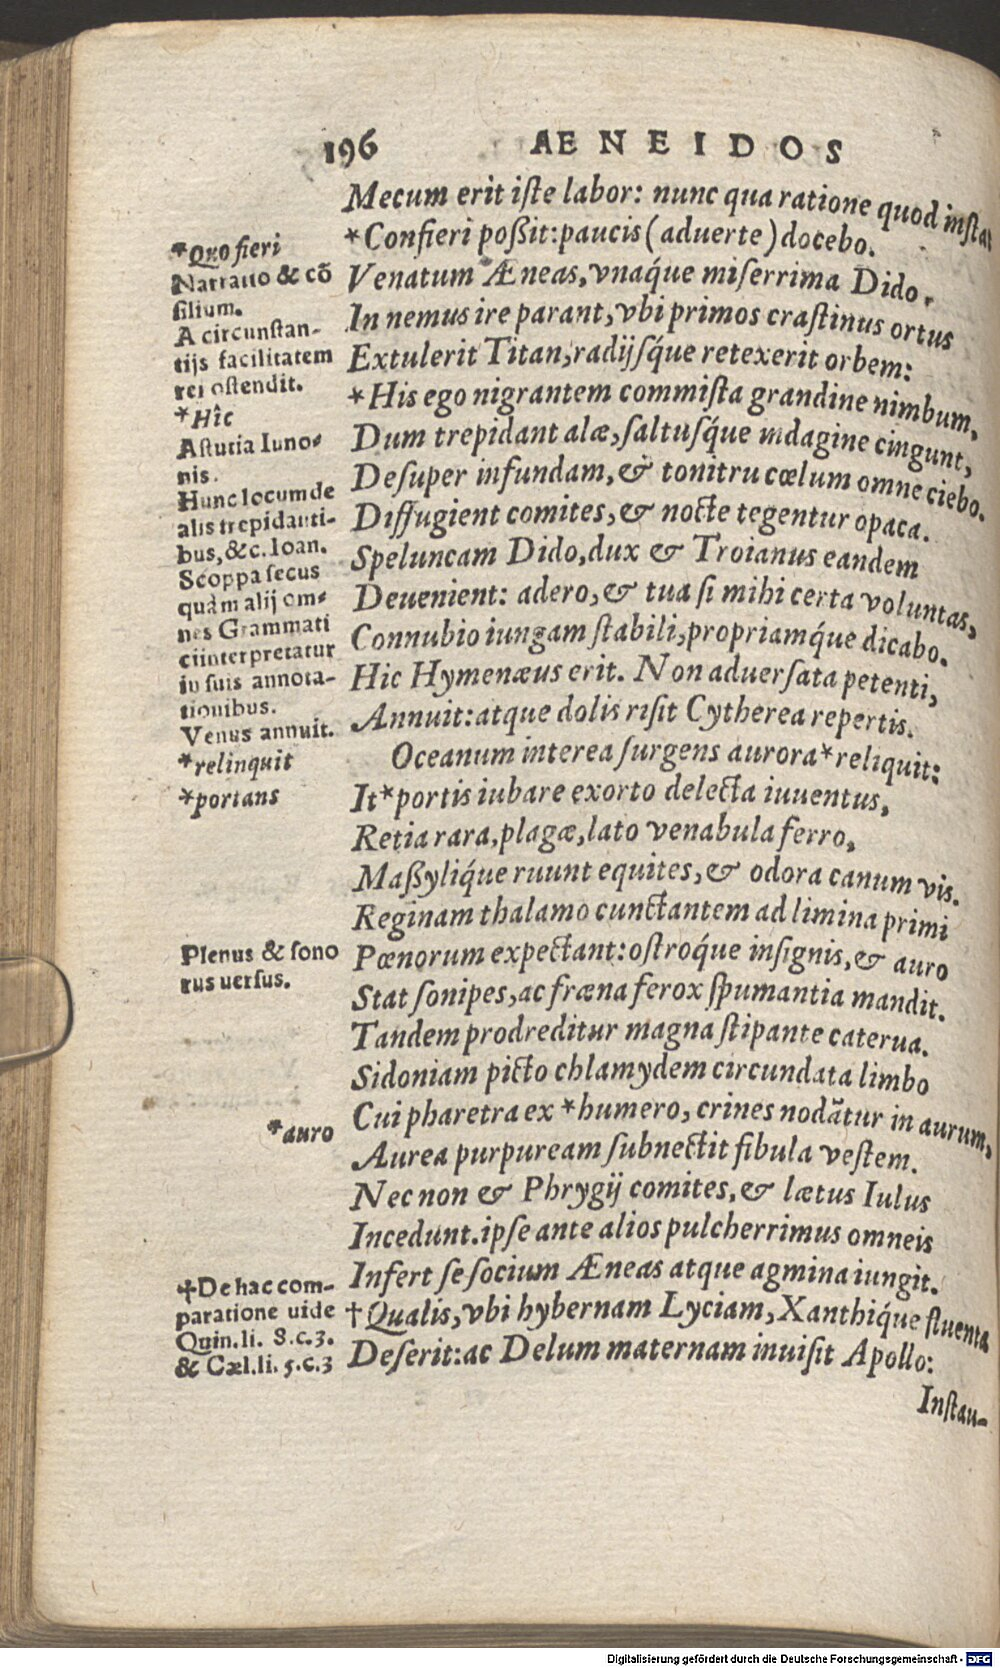 196 AENEIDOS
Mecum erit iſte labor: nunc qua ratione quod inſtat
*Confieri poßit: paucis (aduerte) docebo.
Venatum Æneas, vnaq́ue miſerrima Dido,
In nemus ire parant, vbi primos craſtinus ortus
Extulerit Titan, radijſq́ue retexerit orbem:
*His ego nigrantem commiſta grandine nimbum,
Dum trepidant alæ, ſaltuſq́ue indagine cingunt,
Deſuper infundam, & tonitru cœlum omne ciebo.
Diffugient comites, & nocte tegentur opaca.
Speluncam Dido, dux & Troianus eandem
Deuenient: adero, & tua ſi mihi certa voluntas,
Connubio iungam ſtabili, propriamq́ue dicabo.
Hic Hymenæus erit. Non aduerſata petenti,
Annuit: atque dolis riſit Cytherea repertis.
Oceanum interea ſurgens aurora *reliquit:
It *portis iubare exorto delecta iuuentus,
Retia rara, plagæ, lato venabula ferro,
Maßyliq́ue ruunt equites, & odora canum vis.
Reginam thalamo cunctantem ad limina primi
Pœnorum expectant: oſtroq́ue inſignis, & auro
Stat ſonipes, ac fræna ferox ſpumantia mandit.
Tandem prodreditur magna ſtipante caterua.
Sidoniam picto chlamydem circundata limbo
Cui pharetra ex *humero, crines nodãtur in aurum,
Aurea purpuream ſubnectit fibula veſtem.
Nec non & Phrygij comites, & lætus Iulus
Incedunt. ipſe ante alios pulcherrimus omneis
Infert ſe ſocium Æneas atque agmina iungit.
†Qualis, vbi hybernam Lyciam, Xanthiq́ue fluenta
Deſerit: ac Delum maternam inuiſit Apollo:
Inſtau-
*Quo fieri
Narratio & cõ
ſilium.
A circunſtan-
tijs facilitatem
rei oſtendit.
*Hîc
Aſtutia Iuno-
nis.
Hunc locum de
alis trepidanti-
bus, &c. Ioan.
Scoppa ſecus
quàm alij om-
nes Grammati
ci interpretatur
in ſuis annota-
tionibus.
Venus annuit.
*relinquit
*portans
Plenus & ſono
rus uerſus.
*auro
†De hac com-
paratione uide
Quin. li. 8. c. 3.
& Cæl. li. 5. c. 3
Digitalisierung gefördert durch die Deutsche Forschungsgemeinschaft - DFG